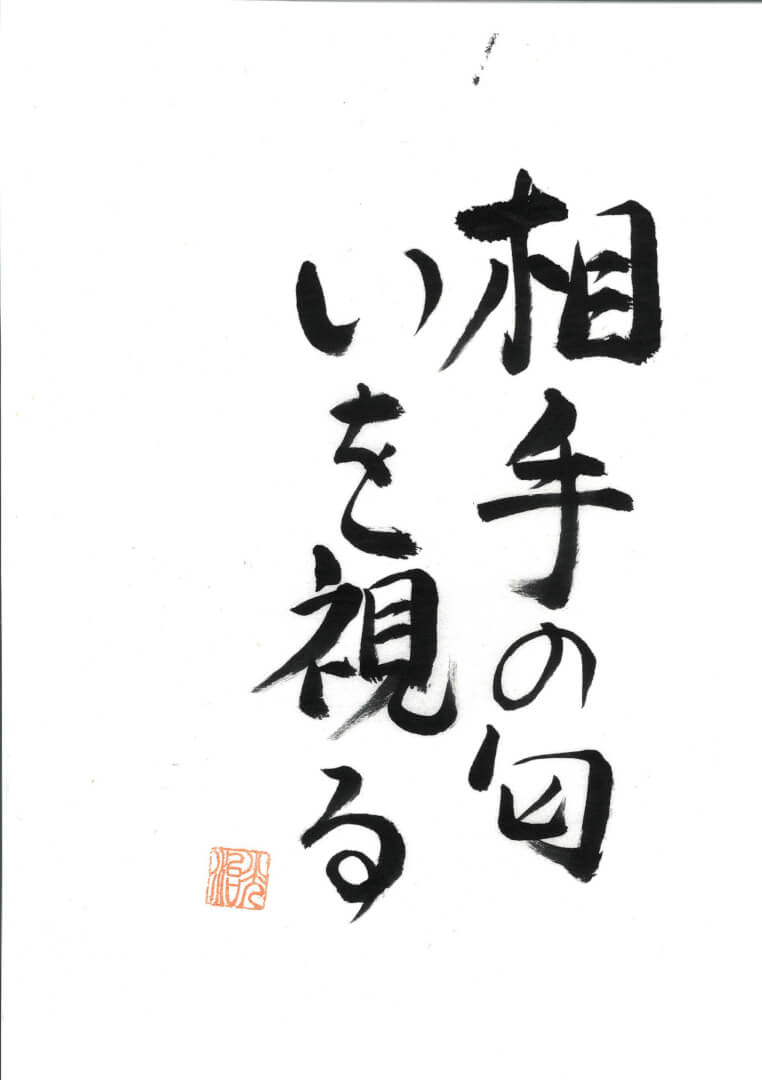 相手の匂
いを視る